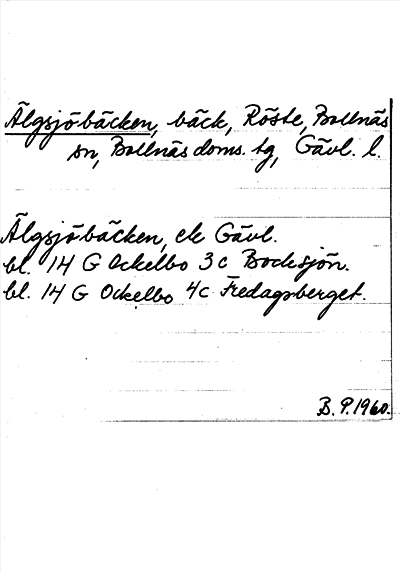 Älgsjöbäcken, bäck, Röste, Bollnäs
sn, Bollnäs doms. tg, Gävl. l.
Älgsjöbäcken, ek Gävl.
bl. 14 G Ockelbo 3c Bodesjön.
bl. 14 G Ockelbo 4c Fredagsberget.
B. P. 1960.